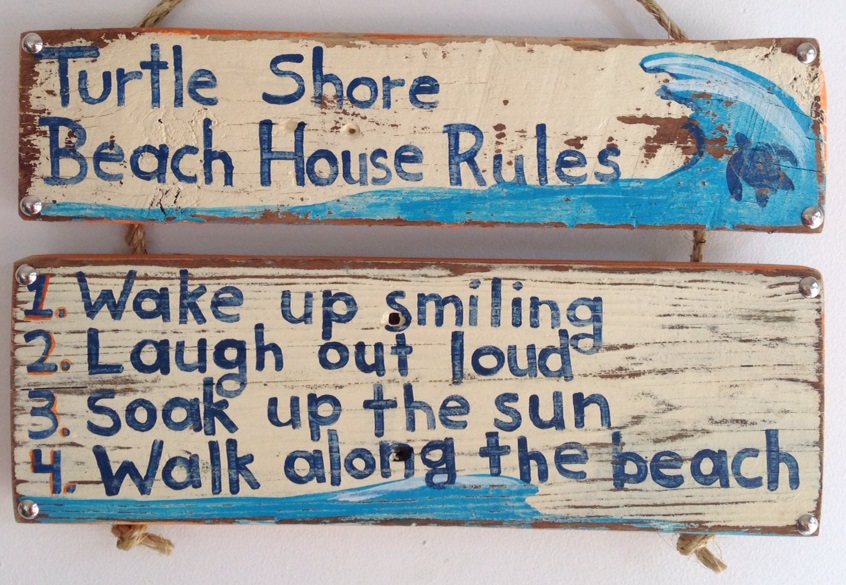 Turtle Shore
Beach House Rules
1. Wake up smiling
2. Laugh out loud
3. Soak up the sun
4. Walk along the beach